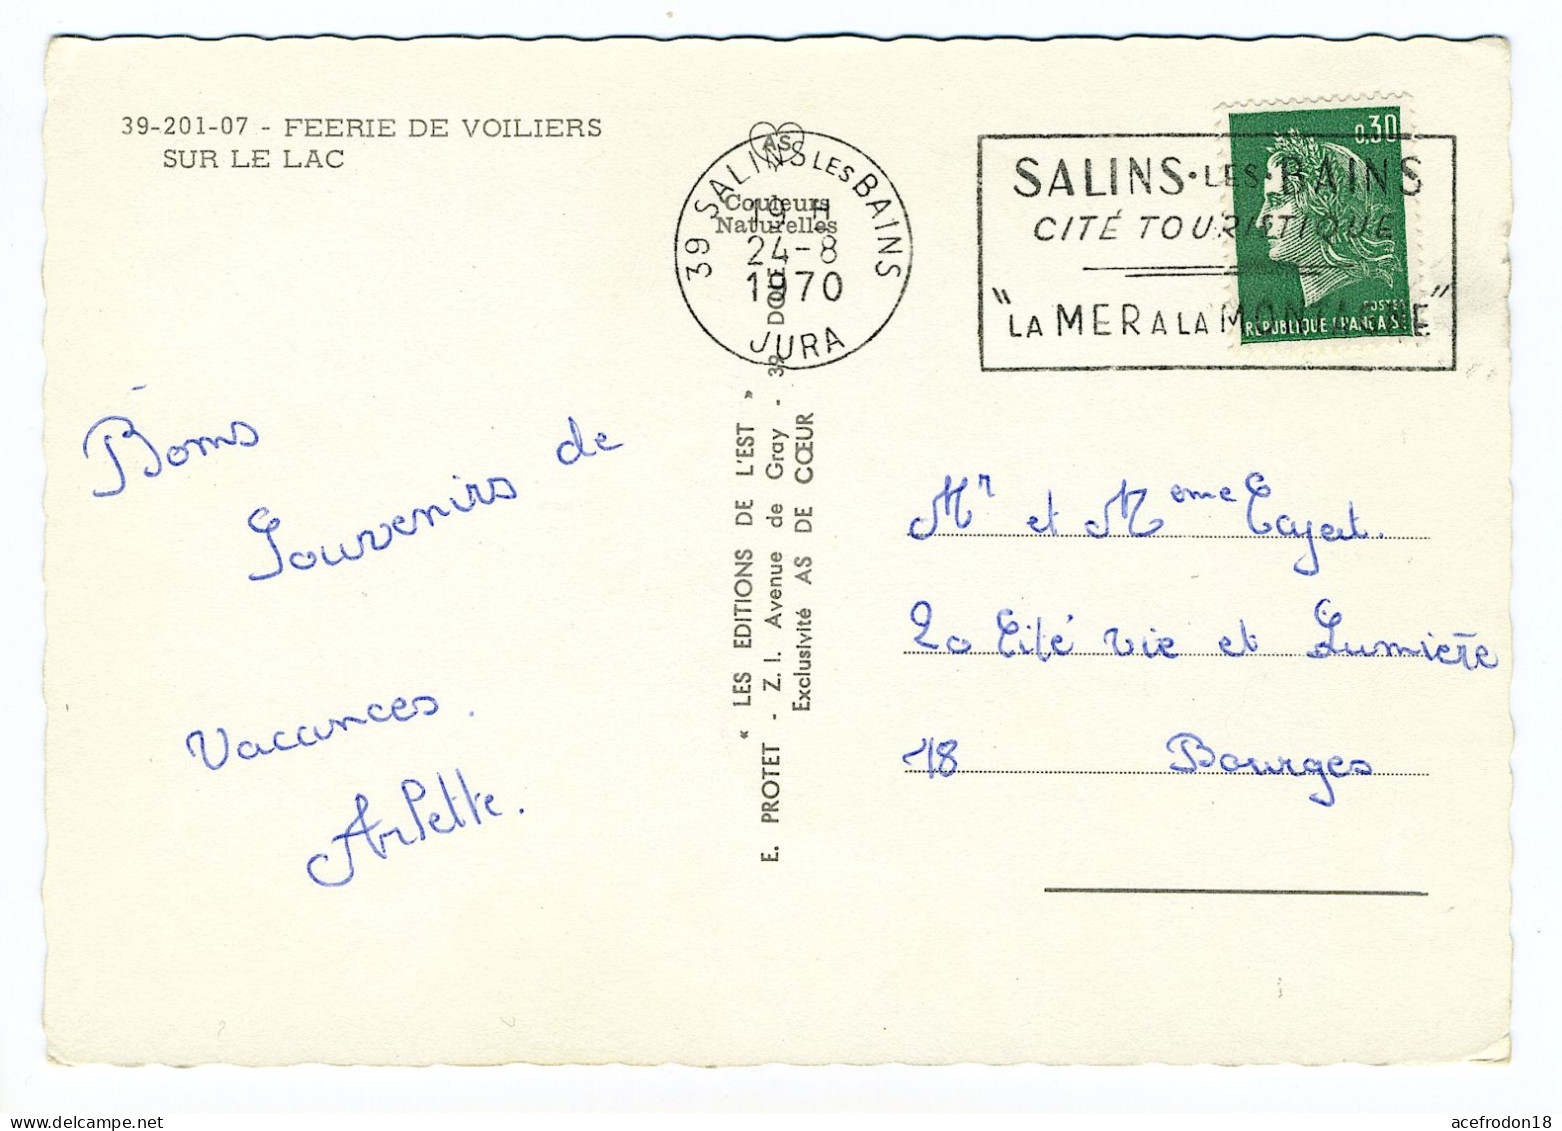 39-201-07 - FEERIE DE VOILIERS
SUR LE LAC
AS
Couleurs
Naturelles
39 SALINS LES BAINS
19 H
24-8
1970
JURA
SALINS·LES·BAINS
CITÉ TOURISTIQUE
"LA MER A LA MONTAGNE"
0,30
POSTES
REPUBLIQUE FRANCAISE
Bons
Souvenirs de
Vacances.
Arlette.
« LES EDITIONS DE L'EST »
E. PROTET - Z. I. Avenue de Gray - 39 DOLE
Exclusivité AS DE CŒUR
Mr et Meme Cajat.
20 Cité vie et Lumière
18 Bourges
acefrodon18